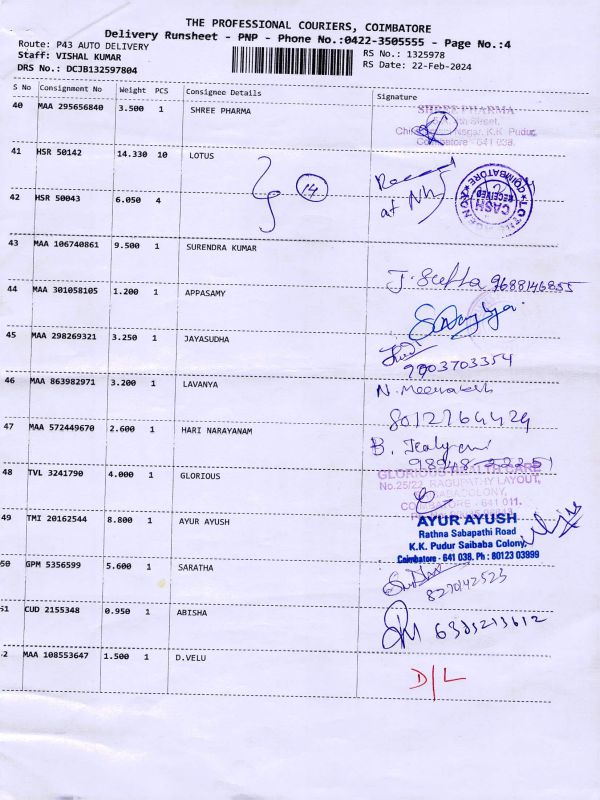 THE PROFESSIONAL COURIERS, COIMBATORE
Delivery Runsheet - PNP - Phone No.:0422-3505555 - Page No.:4
Route: P43 AUTO DELIVERY
Staff: VISHAL KUMAR
DRS No.: DCJB132597804
RS No.: 1325978
RS Date: 22-Feb-2024
S No Consignment No Weight PCS Consignee Details Signature
40 MAA 295656840 3.500 1 SHREE PHARMA
SHREE PHARMA
Street,
Nagar, K.K Pudur,
Coimbatore - 641 038.
41 HSR 50142 14.330 10 LOTUS
14
at
CASH
RECEIVED
COIMBATORE
42 HSR 50043 6.050 4
43 MAA 106740861 9.500 1 SURENDRA KUMAR
9688146855
44 MAA 301058105 1.200 1 APPASAMY
45 MAA 298269321 3.250 1 JAYASUDHA
7003703354
46 MAA 863982971 3.200 1 LAVANYA
N. Meenakshi
8012764424
47 MAA 572449670 2.600 1 HARI NARAYANAM
B.
48 TVL 3241790 4.000 1 GLORIOUS
GLORIOUS CARE
No.25/22, RAGUPATHY LAYOUT,
COLONY,
COIMBATORE - 641 011.
49 TMI 20162544 8.800 1 AYUR AYUSH
AYUR AYUSH
Rathna Sabapathi Road
K.K. Pudur Saibaba Colony,
Coimbatore - 641 038. Ph : 80123 03999
50 GPM 5356599 5.600 1 SARATHA
8270142523
51 CUD 2155348 0.950 1 ABISHA
6383213612
2 MAA 108553647 1.500 1 D.VELU
D/L